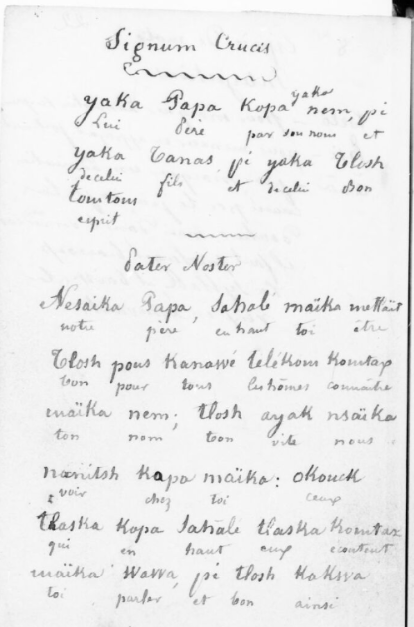 Signum Crucis
yaka
yaka Papa kopa nem, pi
Lui Père par son nom et
yaka Tanas pi yaka Tlosh
de celui fils et de celui Bon
tomtom
esprit
Pater Noster
Nesaika Papa, Sahalé maïka mettaït
notre père en haut toi être
Tlosh pous kanawé telékom komtax
bon pour tous les hômes connaître
maïka nem; tlosh ayak nsaïka
ton nom bon vite nous
nanitsh kapa maïka: okouck
voir chez toi ceux
tlaska kopa Sahâle tlaska komtax
qui en haut eux écoutent
maïka wawa, pi tlosh kakwa
toi parler et bon ainsi